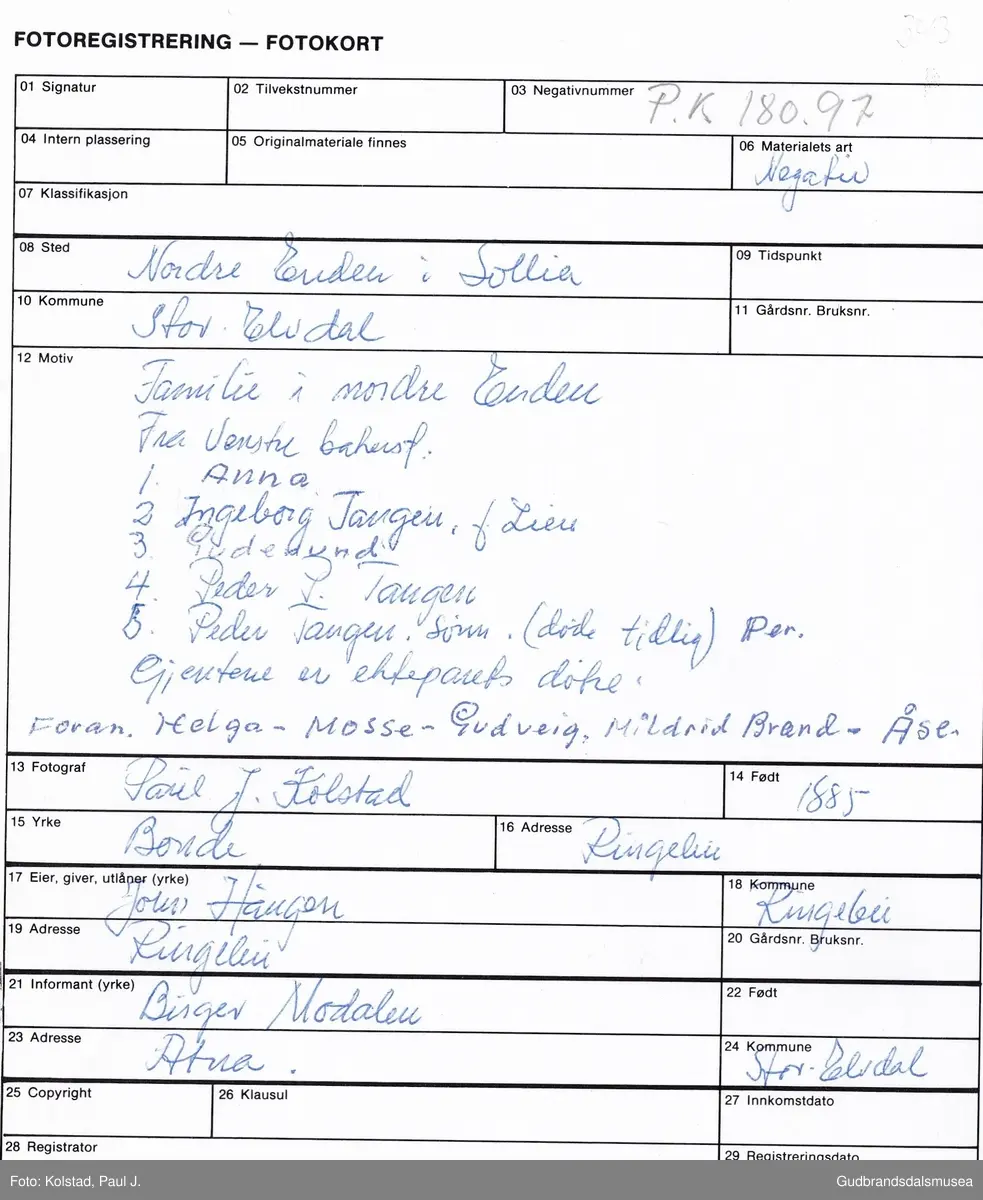 FOTOREGISTRERING — FOTOKORT
01 Signatur
02 Tilvekstnummer
03 Negativnummer P.K 180.97
04 Intern plassering
05 Originalmateriale finnes
06 Materialets art Negativ
07 Klassifikasjon
08 Sted Nordre Enden i Sollia
09 Tidspunkt
10 Kommune Stor-Elvdal
11 Gårdsnr. Bruksnr.
12 Motiv
Familie i nordre Enden
Fra Venstre bakerst.
1. Anna
2 Ingeborg Tangen, f Lien
3. Gudemund
4. Peder P. Tangen
5. Peder Tangen. Sønn. (døde tidlig) Per.
Gjentene er ekteparets døtre.
Foran. Helga - Mosse - Gudveig, Mildrid Brænd - Åse.
13 Fotograf Paul J. Kolstad
14 Født 1885
15 Yrke Bonde
16 Adresse Ringebu
17 Eier, giver, utlåner (yrke) John Haugen
18 Kommune Ringebu
19 Adresse Ringebu
20 Gårdsnr. Bruksnr.
21 Informant (yrke) Birger Modalen
22 Født
23 Adresse Atna.
24 Kommune Stor-Elvdal
25 Copyright
26 Klausul
27 Innkomstdato
28 Registrator
29 Registreringsdato
Foto: Kolstad, Paul J.
Gudbrandsdalsmusea